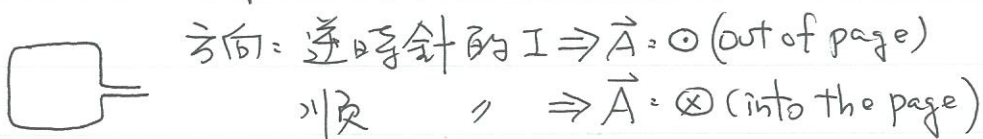 方向: 逆時針的 I ⇒ A⃗ : ⊙ (out of page)
順 〃 ⇒ A⃗ : ⊗ (into the page)